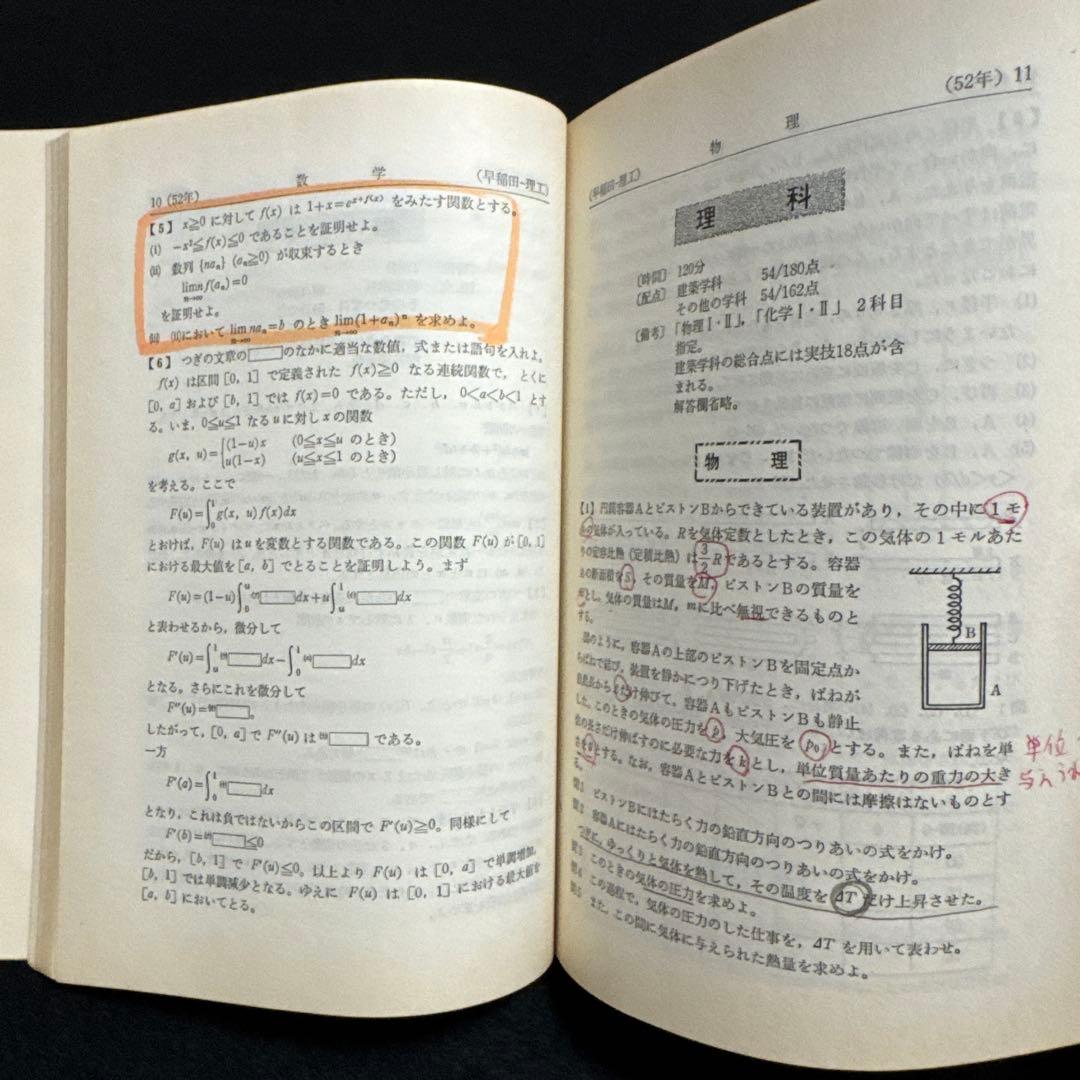 10 (52年)　数　学　(早稲田-理工)
【5】 x≧0 に対して f(x) は 1+x=e^{x+f(x)} をみたす関数とする。
(i) -x²≦f(x)≦0 であることを証明せよ。
(ii) 数列 {na_n} (a_n≧0) が収束するとき
lim_{n→∞} n f(a_n)=0
を証明せよ。
(iii) (ii)において lim_{n→∞} na_n=b のとき lim_{n→∞}(1+a_n)^n を求めよ。
【6】 つぎの文章の□のなかに適当な数値，式または語句を入れよ。
f(x) は区間 [0, 1] で定義された f(x)≧0 なる連続関数で，とくに
[0, a] および [b, 1] では f(x)=0 である。ただし，0<a<b<1 とす
る。いま，0≦u≦1 なる u に対し x の関数
g(x, u)={(1-u)x (0≦x≦u のとき)
u(1-x) (u≦x≦1 のとき)
を考える。ここで
F(u)=∫_0^1 g(x, u)f(x)dx
とおけば，F(u) は u を変数とする関数である。この関数 F(u) が [0, 1]
における最大値を [a, b] でとることを証明しよう。まず
F(u)=(1-u)∫_0^u □dx+u∫_u^1 □dx
と表わせるから，微分して
F'(u)=∫_u^1 □dx-∫_0^1 □dx
となる。さらにこれを微分して
F''(u)=□。
したがって，[0, a] で F''(u) は □ である。
一方
F'(a)=∫_0^1 □dx
となり，これは負ではないからこの区間で F'(u)≧0。同様にして
F'(b)=□≦0
だから，[b, 1] で F'(u)≦0。以上より F(u) は [0, a] で単調増加，
[b, 1] では単調減少となる。ゆえに F(u) は [0, 1] における最大値を
[a, b] においてとる。
(早稲田-理工)　物　理　(52年) 11
理　科
〔時間〕 120分
〔配点〕 建築学科 54/180点
その他の学科 54/162点
〔備考〕「物理Ⅰ・Ⅱ」，「化学Ⅰ・Ⅱ」 2科目
指定。
建築学科の総合点には実技18点が含
まれる。
解答欄省略。
物　理
【1】 円筒容器AとピストンBからできている装置があり，その中に1モ
ルの気体が入っている。Rを気体定数としたとき，この気体の1モルあた
りの定容比熱（定積比熱）は3/2Rであるとする。容器
の断面積をS，その質量をM，ピストンBの質量を
mとし，気体の質量はM，mに比べ無視できるものと
する。
図のように，容器Aの上部のピストンBを固定点か
らばねで結び，装置を静かにつり下げたとき，ばねが
自然長から だけ伸びて，容器AもピストンBも静止
した。このときの気体の圧力をp，大気圧をp₀とする。また，ばねを単
位の長さだけ伸ばすのに必要な力をkとし，単位質量あたりの重力の大き
さをgとする。なお，容器AとピストンBとの間には摩擦はないものとす
る。
単位
B
A
問1 ピストンBにはたらく力の鉛直方向のつりあいの式をかけ。
問2 容器Aにはたらく力の鉛直方向のつりあいの式をかけ。
つぎに，ゆっくりと気体を熱して，その温度をΔTだけ上昇させた。
問3 このときの気体の圧力を求めよ。
問4 この過程で，気体の圧力のした仕事を，ΔT を用いて表わせ。
問5 また，この間に気体に与えられた熱量を求めよ。